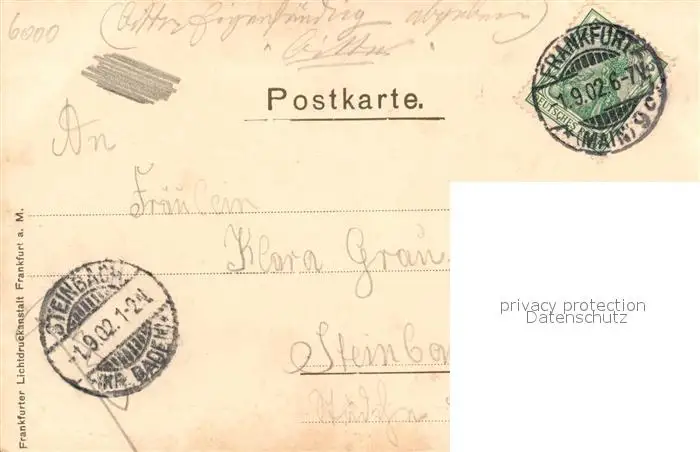 6000
(Bitte Eigenhändig abgeben)
Bitte
Postkarte.
FRANKFURT
1.9.02.6-7N.
(MAIN)
DEUTSCHES
An
Fräulein
Klara Grau
Steinba
STEINBACH
1.9.02.1-2N.
(KR. BADEN)
Frankfurter Lichtdruckanstalt Frankfurt a. M.
privacy protection
Datenschutz